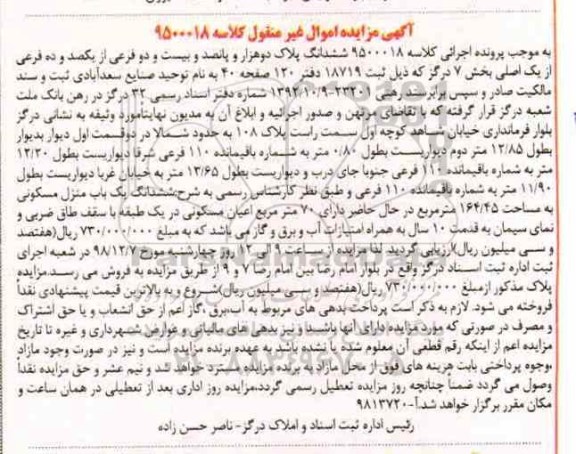 آگهی مزایده اموال غیر منقول کلاسه ۹۵۰۰۰۱۸
به موجب پرونده اجرائی کلاسه ۹۵۰۰۰۱۸ ششدانگ پلاک دوهزار و پانصد و بیست و دو فرعی از یکصد و ده فرعی
از یک اصلی بخش ۷ درگز که ذیل ثبت ۱۸۷۱۹ دفتر ۱۲۰ صفحه ۴۰ به نام توحید صنایع سعدآبادی ثبت و سند
مالکیت صادر و سپس برابر سند رهنی ۲۳۲۰۱-۱۳۹۲/۱۰/۹ شماره دفتر اسناد رسمی ۳۲ درگز در رهن بانک ملت
شعبه درگز قرار گرفته که با تقاضای مرتهن و صدور اجرائیه و ابلاغ آن به مدیون نهایتامورد وثیقه به نشانی درگز
بلوار فرمانداری خیابان شاهد کوچه اول سمت راست پلاک ۱۰۸ به حدود شمالا در دوقسمت اول دیوار بدیوار
بطول ۱۲/۸۵ متر دوم دیواریست بطول ۰/۸۰ متر به شماره باقیمانده ۱۱۰ فرعی شرقا دیواریست بطول ۱۲/۲۰
متر به شماره باقیمانده ۱۱۰ فرعی جنوبا جای درب و دیواریست بطول ۱۳/۶۵ متر به خیابان غربا دیواریست بطول
۱۱/۹۰ متر به شماره باقیمانده ۱۱۰ فرعی و طبق نظر کارشناس رسمی به شرح:ششدانگ یک باب منزل مسکونی
به مساحت ۱۶۴/۴۵ مترمربع در حال حاضر دارای ۷۰ متر مربع اعیان مسکونی در یک طبقه با سقف طاق ضربی و
نمای سیمان به قدمت ۱۰ سال به همراه امتیازات آب و برق و گاز می باشد که به مبلغ ۷۳۰/۰۰۰/۰۰۰ ریال(هفتصد
و سی میلیون ریال)ارزیابی گردید لذا مزایده از ساعت ۹ الی ۱۲ روز چهارشنبه مورخ ۹۸/۱۲/۷ در شعبه اجرای
ثبت اداره ثبت اسناد درگز واقع در بلوار امام رضا بین امام رضا ۷ و ۹ از طریق مزایده به فروش می رسد.مزایده
پلاک مذکور ازمبلغ ۷۳۰/۰۰۰/۰۰۰ ریال(هفتصد و سی میلیون ریال)شروع و به بالاترین قیمت پیشنهادی نقداً
فروخته می شود. لازم به ذکر است پرداخت بدهی های مربوط به آب،برق ،گاز اعم از حق انشعاب و یا حق اشتراک
و مصرف در صورتی که مورد مزایده دارای آنها باشد و نیز بدهی های مالیاتی و عوارض شهرداری و غیره تا تاریخ
مزایده اعم از اینکه رقم قطعی آن معلوم شده یا نشده باشد به عهده برنده مزایده است و نیز در صورت وجود مازاد
،وجوه پرداختی بابت هزینه های فوق از محل مازاد به برنده مزایده مسترد خواهد شد و نیم عشر و حق مزایده نقداً
وصول می گردد ضمناً چنانچه روز مزایده تعطیل رسمی گردد،مزایده روز اداری بعد از تعطیلی در همان ساعت و
مکان مقرر برگزار خواهد شد.آ-۹۸۱۳۷۲۰
رئیس اداره ثبت اسناد و املاک درگز- ناصر حسن زاده